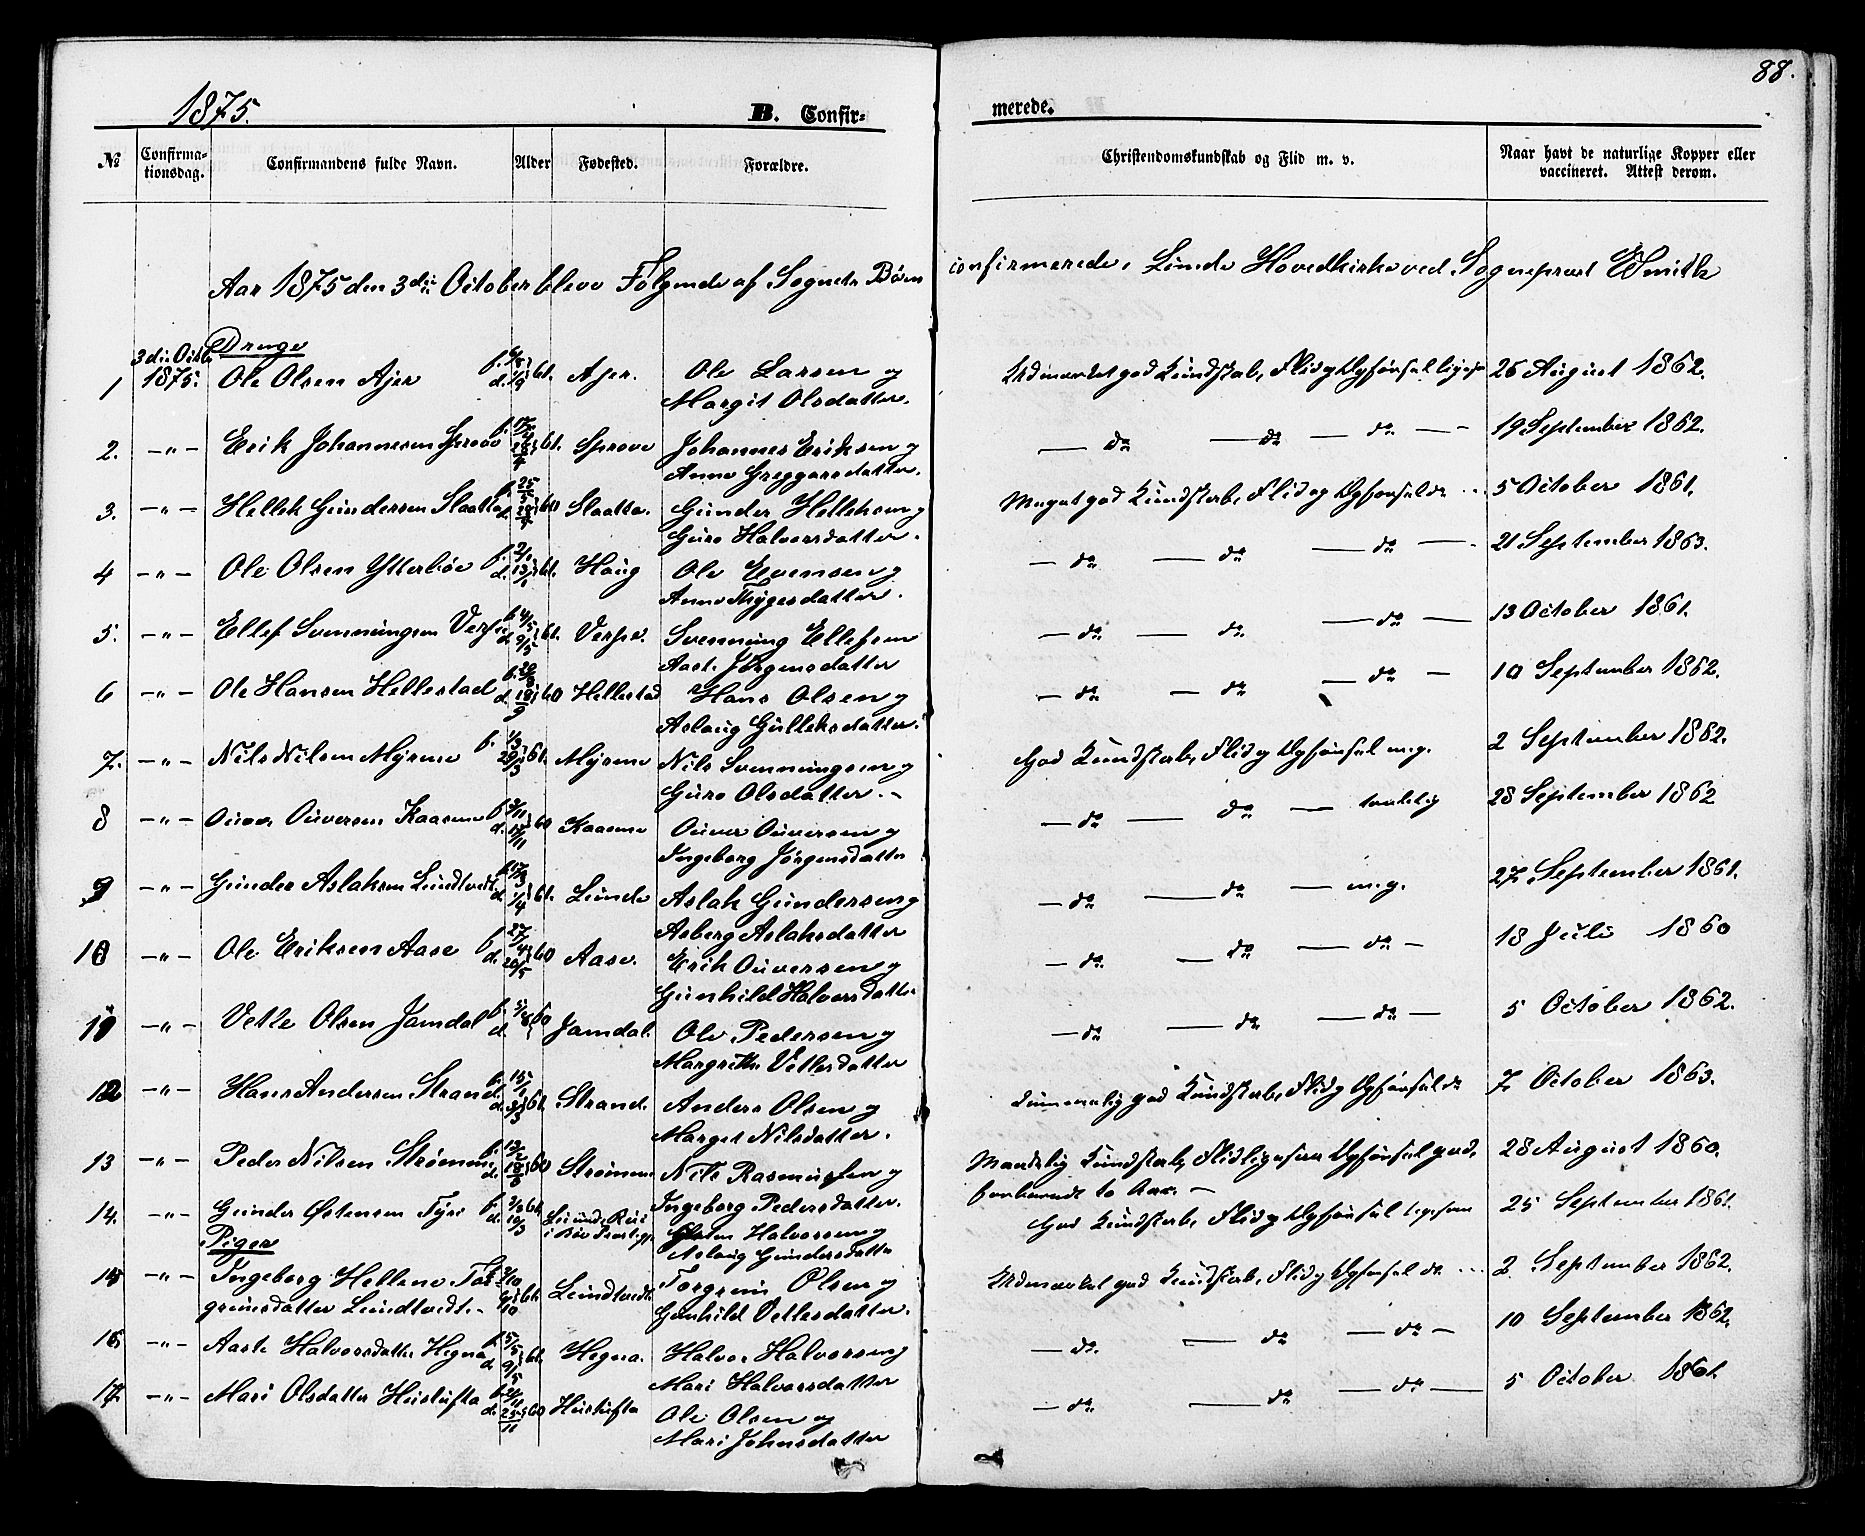 88.
1875.
B. Confirmerede.
№ Confirmationsdag. Confirmandens fulde Navn. Alder Fødested. Forældre. Christendomskundskab og Flid m. v. Naar havt de naturlige Kopper eller vaccineret. Attest derom.
Aar 1875 den 3die October bleve Følgende af Sognets Børn confirmerede i Lunde Hovedkirke ved Sognepræst Smith
Drenge
1 3die Octbr 1875. Ole Olsen Ajer 61. Ajer. Ole Larsen og Udmærket god Kundskab, Flid og Opførsel ligesaa 26 August 1862.
Margit Olsdatter.
2. -"- Erik Johannesen Sprove 61. Sprove Johannes Eriksen og do do do 19 September 1862.
Anne Greggersdatter.
3. -"- Hellek Gundersen Slaatta 60 Slaatta. Gunder Helleksen og Meget god Kundskab, Flid og Opførsel do 5 October 1861.
Guro Halvorsdatter.
4 -"- Ole Olsen Ytterböe 61. Haug Ole Evensen og do do do 21 September 1863.
Anne Thygesdatter.
5. -"- Ellef Svenningsen 61. Svenning Ellefsen do do do 13 October 1861.
Aaste Jørgensdatter
6 -"- Ole Hansen Hellestad 60 Hellestad Hans Olsen og do do do 10 September 1862.
Aslaug Gulleksdatter.
7. -"- Nils Nilsen Myrene 61. Myrene Nils Svenningsen og God Kundskab, Flid og Opførsel m. g. 2 September 1862.
Guro Olsdatter.
8 -"- Ouver Ouversen Kaasene 60 Kaasene Ouver Ouversen og do do 28 September 1862
Ingeborg Jørgensdatter
9 -"- Gunder Aslaksen Lundtvedt 61. Lunde Aslak Gundersen og do do m. g. 27 September 1861.
Asberg Aslaksdatter
10 -"- Ole Eriksen Aase 60 Aase. Erik Ouversen og do do do 18 Juli 1860
Gunhild Halvorsdatter
11 -"- Vetle Olsen Jamdal 60 Jamdal. Ole Pedersen og do do do 5 October 1862.
Margrethe Vetlesdatter
12 -"- Hans Andersen Strand 61. Strand. Anders Olsen og Temmelig god Kundskab, Flid og Opførsel do 7 October 1863.
Marget Nilsdatter.
13 -"- Peder Nilsen Strømme 60 Strømme Nils Rasmussen og Maadelig Kundskab, Flid ligesaa Opførsel god, 28 August 1860.
Ingeborg Pedersdatter. forberedt to Aar.
14. -"- Gunder Østensen Tyri 61. Østen Halvorsen og God Kundskab, Flid og Opførsel ligesaa 25 September 1861.
Aslaug Gundersdatter
Piger
15 -"- Ingeborg Hellene Tor- 61. Lundtvedt. Torgrim Olsen og Udmærket god Kundskab, Flid og Opførsel do 2. September 1862.
grimsdatter Lundtvedt. Gunhild Vetlesdatter.
16. -"- Aaste Halvorsdatter Hegna 61. Hegna. Halvor Halvorsen og do. do do 10 September 1862.
Mari Halvorsdatter
17. -"- Mari Olsdatter Hustufta 60 Hustufta Ole Olsen og do do do 5 October 1861.
Mari Johnsdatter